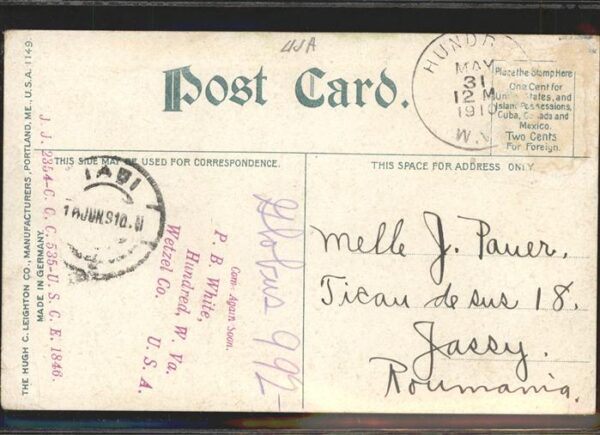 USA
Post Card.
HUNDR
MAY
31
12 M
1910
W.V.
Place the Stamp Here
One Cent for
United States, and
Island Possessions,
Cuba, Canada and
Mexico.
Two Cents
For Foreign.
THIS SIDE MAY BE USED FOR CORRESPONDENCE.
THIS SPACE FOR ADDRESS ONLY.
THE HUGH C. LEIGHTON CO., MANUFACTURERS, PORTLAND, ME., U.S.A. 1149.
MADE IN GERMANY.
J. J. 2354-C. C. C. 535-U. S. C. E. 1846.
IASI
JUN 910
Globus 992
Come Again Soon.
P. B. White,
Hundred, W. Va.
Wetzel Co.
U. S. A.
Melle J. Pauer.
Ticau de sus 18.
Jassy.
Roumania.